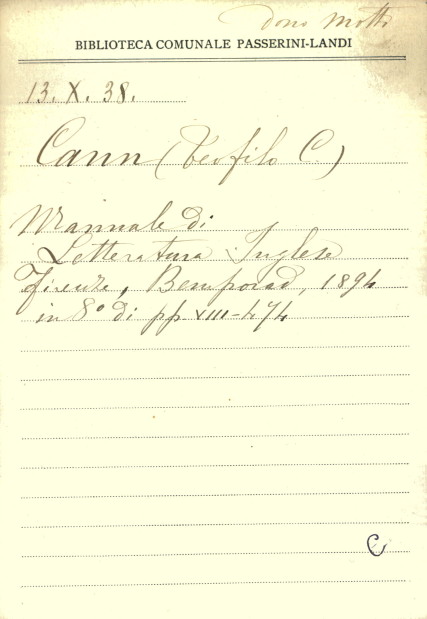 Dono Motti
BIBLIOTECA COMUNALE PASSERINI-LANDI
13. X. 38.
Cann (Teofilo C.)
Mannale di
Letteratura Inglese
Firenze, Bemporad, 1894
in 8° di pp. XIII-474
C